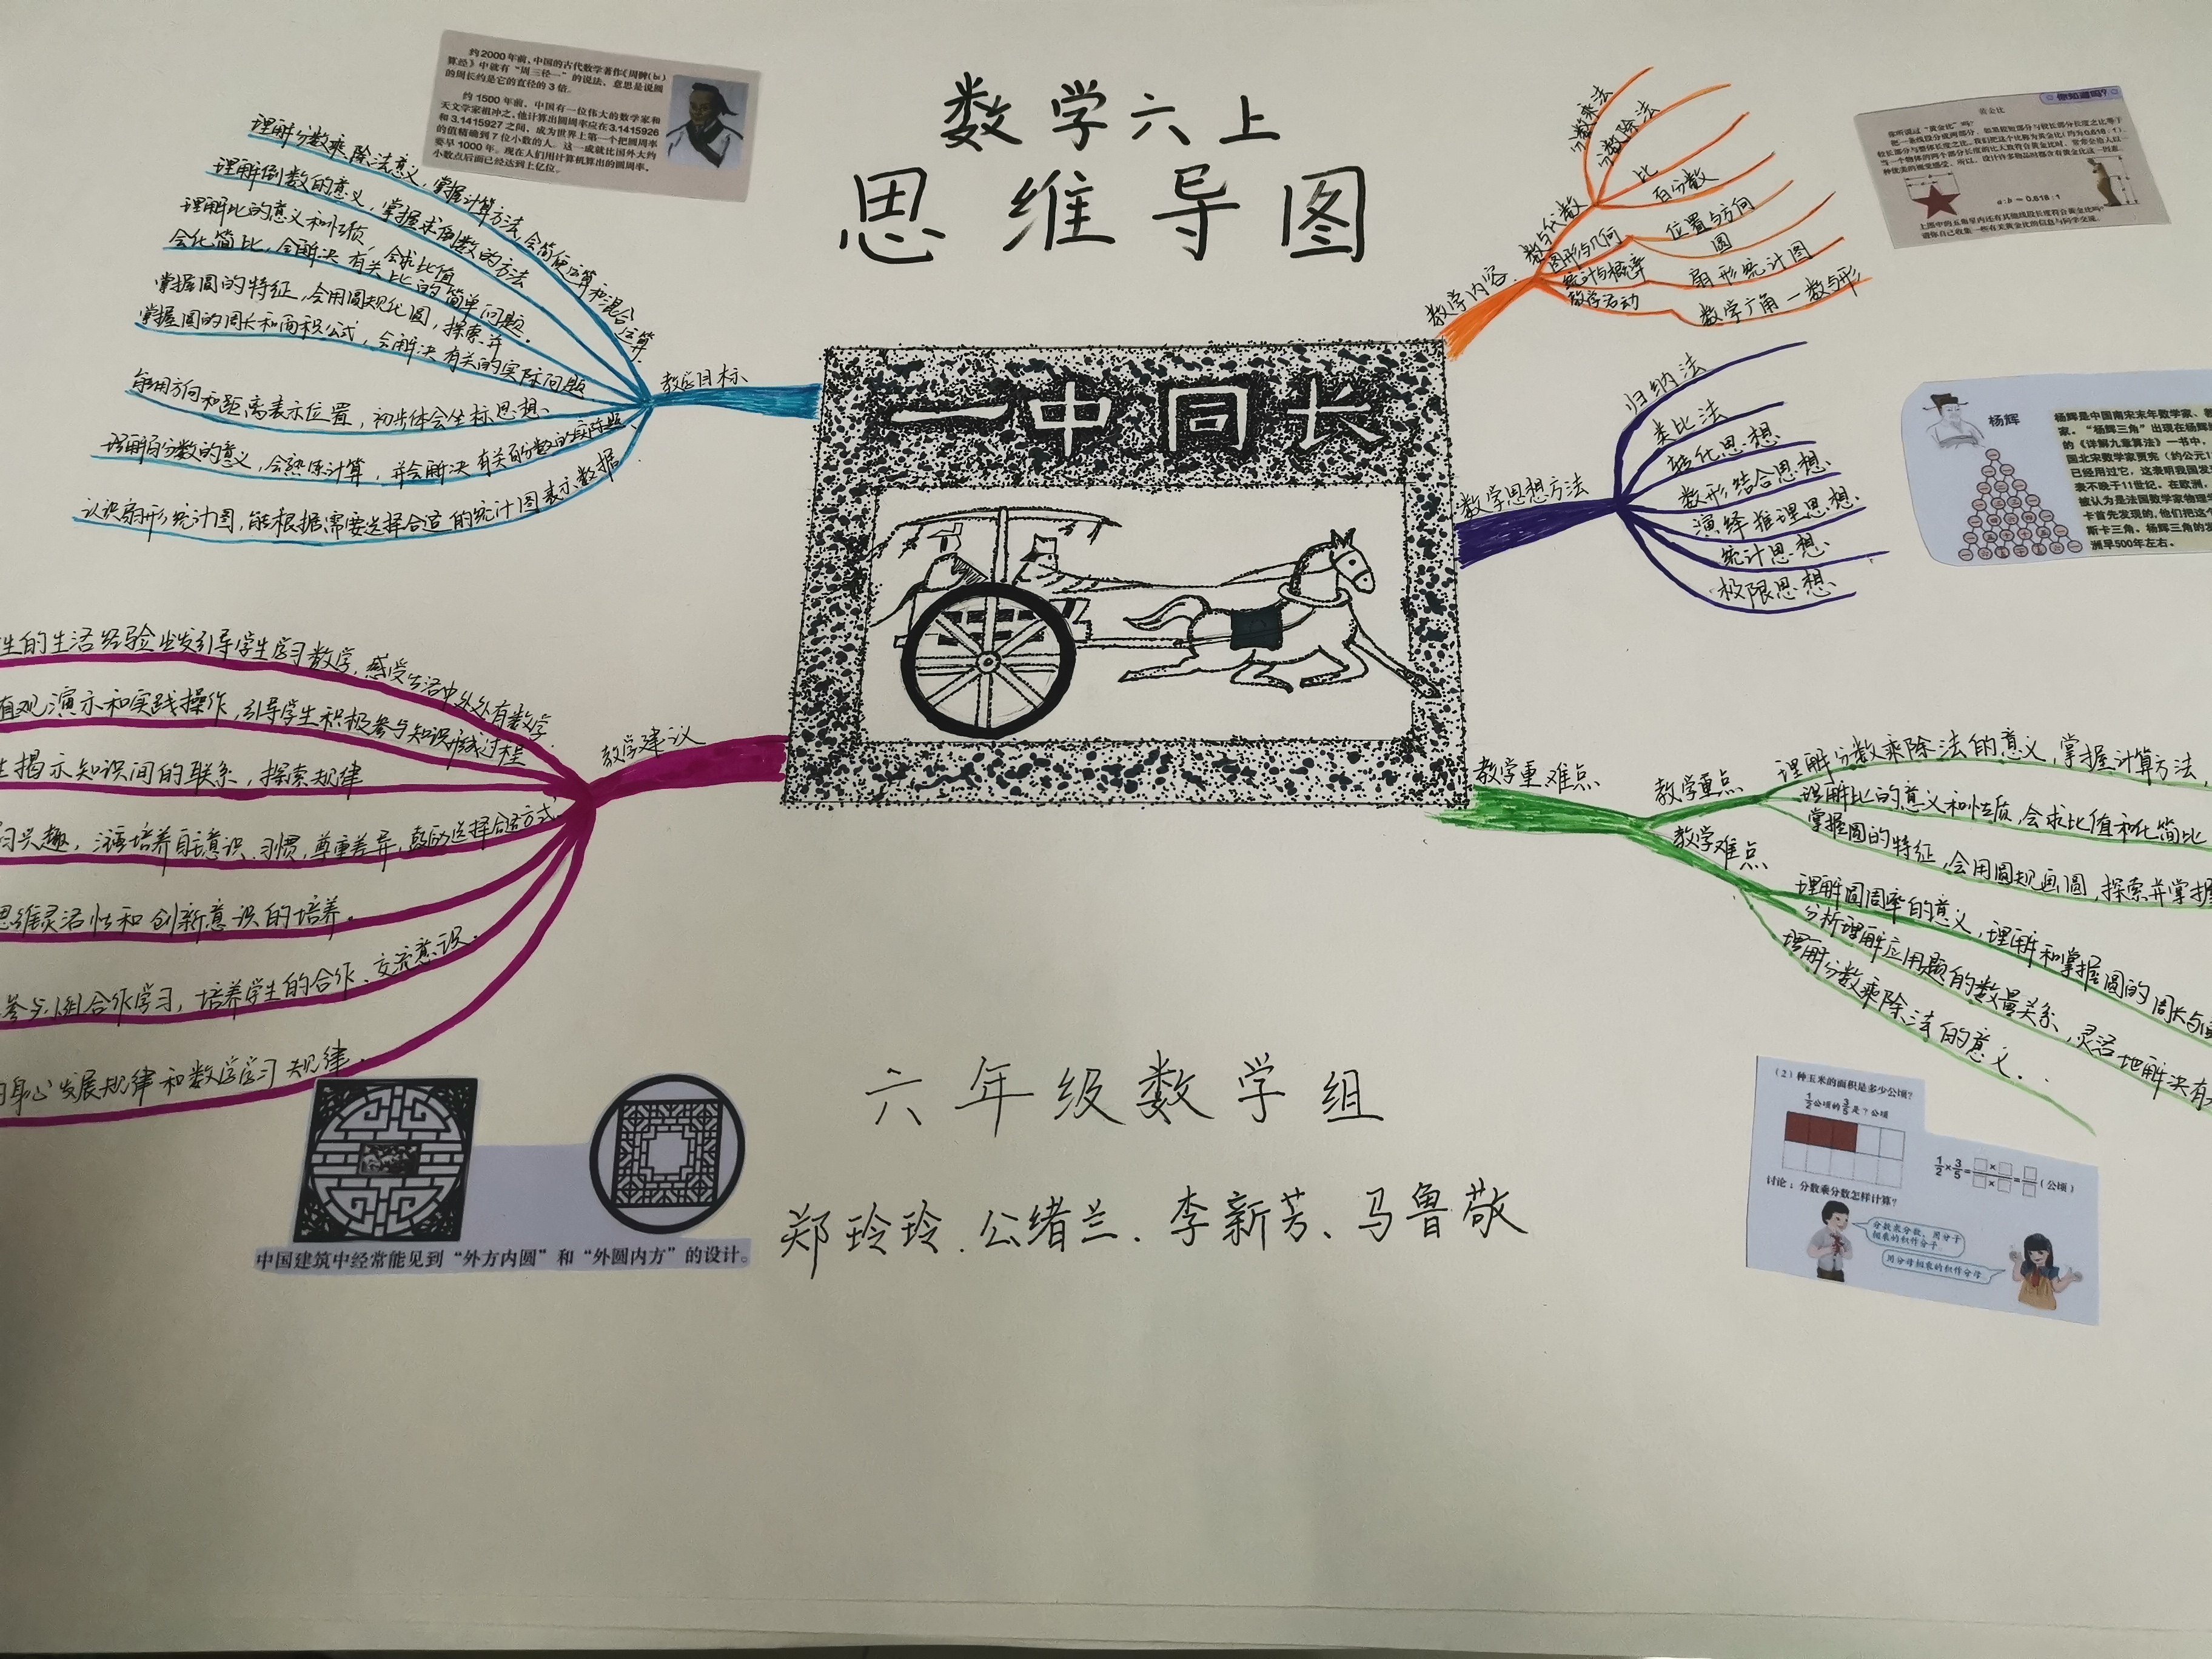 数学六上
思维导图
一中同长
约2000年前,中国的古代数学著作《周髀(bì)
算经》中就有“周三径一”的说法,意思是说圆
的周长约是它的直径的3倍。
约1500年前,中国有一位伟大的数学家和
天文学家祖冲之,他计算出圆周率应在3.1415926
和3.1415927之间,成为世界上第一个把圆周率
的值精确到7位小数的人。这一成就比国外大约
要早1000年。现在人们用计算机算出的圆周率,
小数点后面已经达到上亿位。
教学目标
理解分数乘除法意义,掌握计算方法,会简便运算和混合运算.
理解倒数的意义,掌握求倒数的方法
理解比的意义和性质,会求比值
会化简比,会解决有关比的简单问题.
掌握圆的特征,会用圆规化圆,探索并
掌握圆的周长和面积公式,会解决有关的实际问题
能用方向和距离表示位置,初步体会坐标思想、
理解百分数的意义,会熟练计算,并会解决有关百分数的实际题、
认识扇形统计图,能根据需要选择合适的统计图表示数据.
教学内容
数与代数
分数乘法
分数除法
比
百分数
图形与几何
位置与方向
圆
统计与概率
扇形统计图
数学活动
数学广角—数与形
你知道吗?
黄金比
a:b≈0.618:1
数学思想方法
归纳法
类比法
转化思想
数形结合思想、
演绎推理思想、
统计思想、
极限思想、
杨辉
杨辉是中国南宋末年数学家、教
家。“杨辉三角”出现在杨辉
的《详解九章算法》一书中,
国北宋数学家贾宪(约公元1
已经用过它,这表明我国发
表不晚于11世纪。在欧洲,
被认为是法国数学家物理学
卡首先发现的,他们把这个
斯卡三角。杨辉三角的发
洲早500年左右。
教学建议
生的生活经验出发引导学生学习数学,感受生活中处处有数学.
直观演示和实践操作,引导学生积极参与知识形成过程
生揭示知识间的联系,探索规律
习兴趣,注重培养自主意识、习惯,尊重差异,鼓励选择合适方式
思维灵活性和创新意识的培养。
参与小组合作学习,培养学生的合作、交流意识.
的身心发展规律和数学学习规律.
教学重难点
教学重点
理解分数乘除法的意义,掌握计算方法,
理解比的意义和性质,会求比值和化简比
掌握圆的特征,会用圆规画圆,探索并掌握
教学难点
理解圆周率的意义,理解和掌握圆的周长与
分析理解应用题的数量关系,灵活地解决有
理解分数乘除法的意义...
中国建筑中经常能见到“外方内圆”和“外圆内方”的设计。
六年级数学组
郑玲玲、公绪兰、李新芳、马鲁敬
(2)种玉米的面积是多少公顷?
1/2公顷的3/5是?公顷
1/2×3/5=□×□/□×□=□/□(公顷)
讨论:分数乘分数怎样计算?
分数乘分数,用分子
相乘的积作分子,
用分母相乘的积作分母。